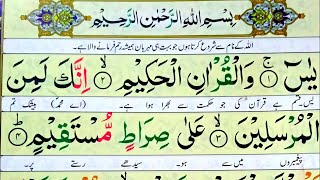 بِسْمِ اللّٰهِ الرَّحْمٰنِ الرَّحِيْمِ
اللہ کے نام سے شروع کرتا ہوں جو بہت ہی مہربان ہمیشہ رحم فرمانے والا ہے۔
يٰسٓ ۚ ۱ وَالْقُرْاٰنِ الْحَكِيْمِ ۙ ۲ اِنَّكَ لَمِنَ
یٰس قسم ہے قرآن کی جو حکمت سے بھرا ہوا ہے۔ (اے محمد) بیشک تم
الْمُرْسَلِيْنَ ۙ ۳ عَلٰى صِرَاطٍ مُّسْتَقِيْمٍ ؕ ۴
پیغمبروں میں سے ہو۔ سیدھے رستے پر۔